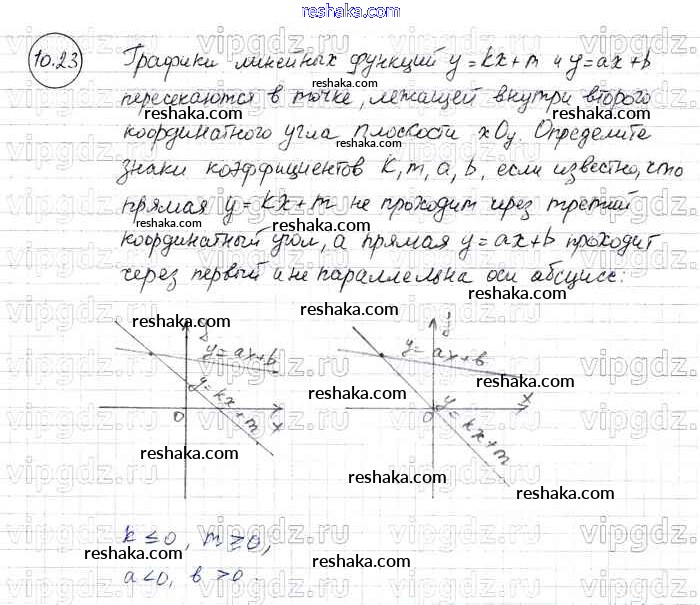 reshaka.com
10.23
Графики линейных функций y=kx+m и y=ax+b
reshaka.com
пересекаются в точке, лежащей внутри второго
reshaka.com
координатного угла плоскости xOy. Определите
reshaka.com
знаки коэффициентов k, m, a, b, если известно, что
reshaka.com
прямая y=kx+m не проходит через третий
reshaka.com
координатный угол, а прямая y=ax+b проходит
reshaka.com
через первый и не параллельна оси абсцисс:
reshaka.com
reshaka.com reshaka.com
y y
y=ax+b y=ax+b
y=kx+m y=kx+m
0 x 0 x
reshaka.com reshaka.com
reshaka.com reshaka.com
k ≤ 0, m ≥ 0,
reshaka.com reshaka.com
a < 0, b > 0.
reshaka.com reshaka.com
vipgdz.ru